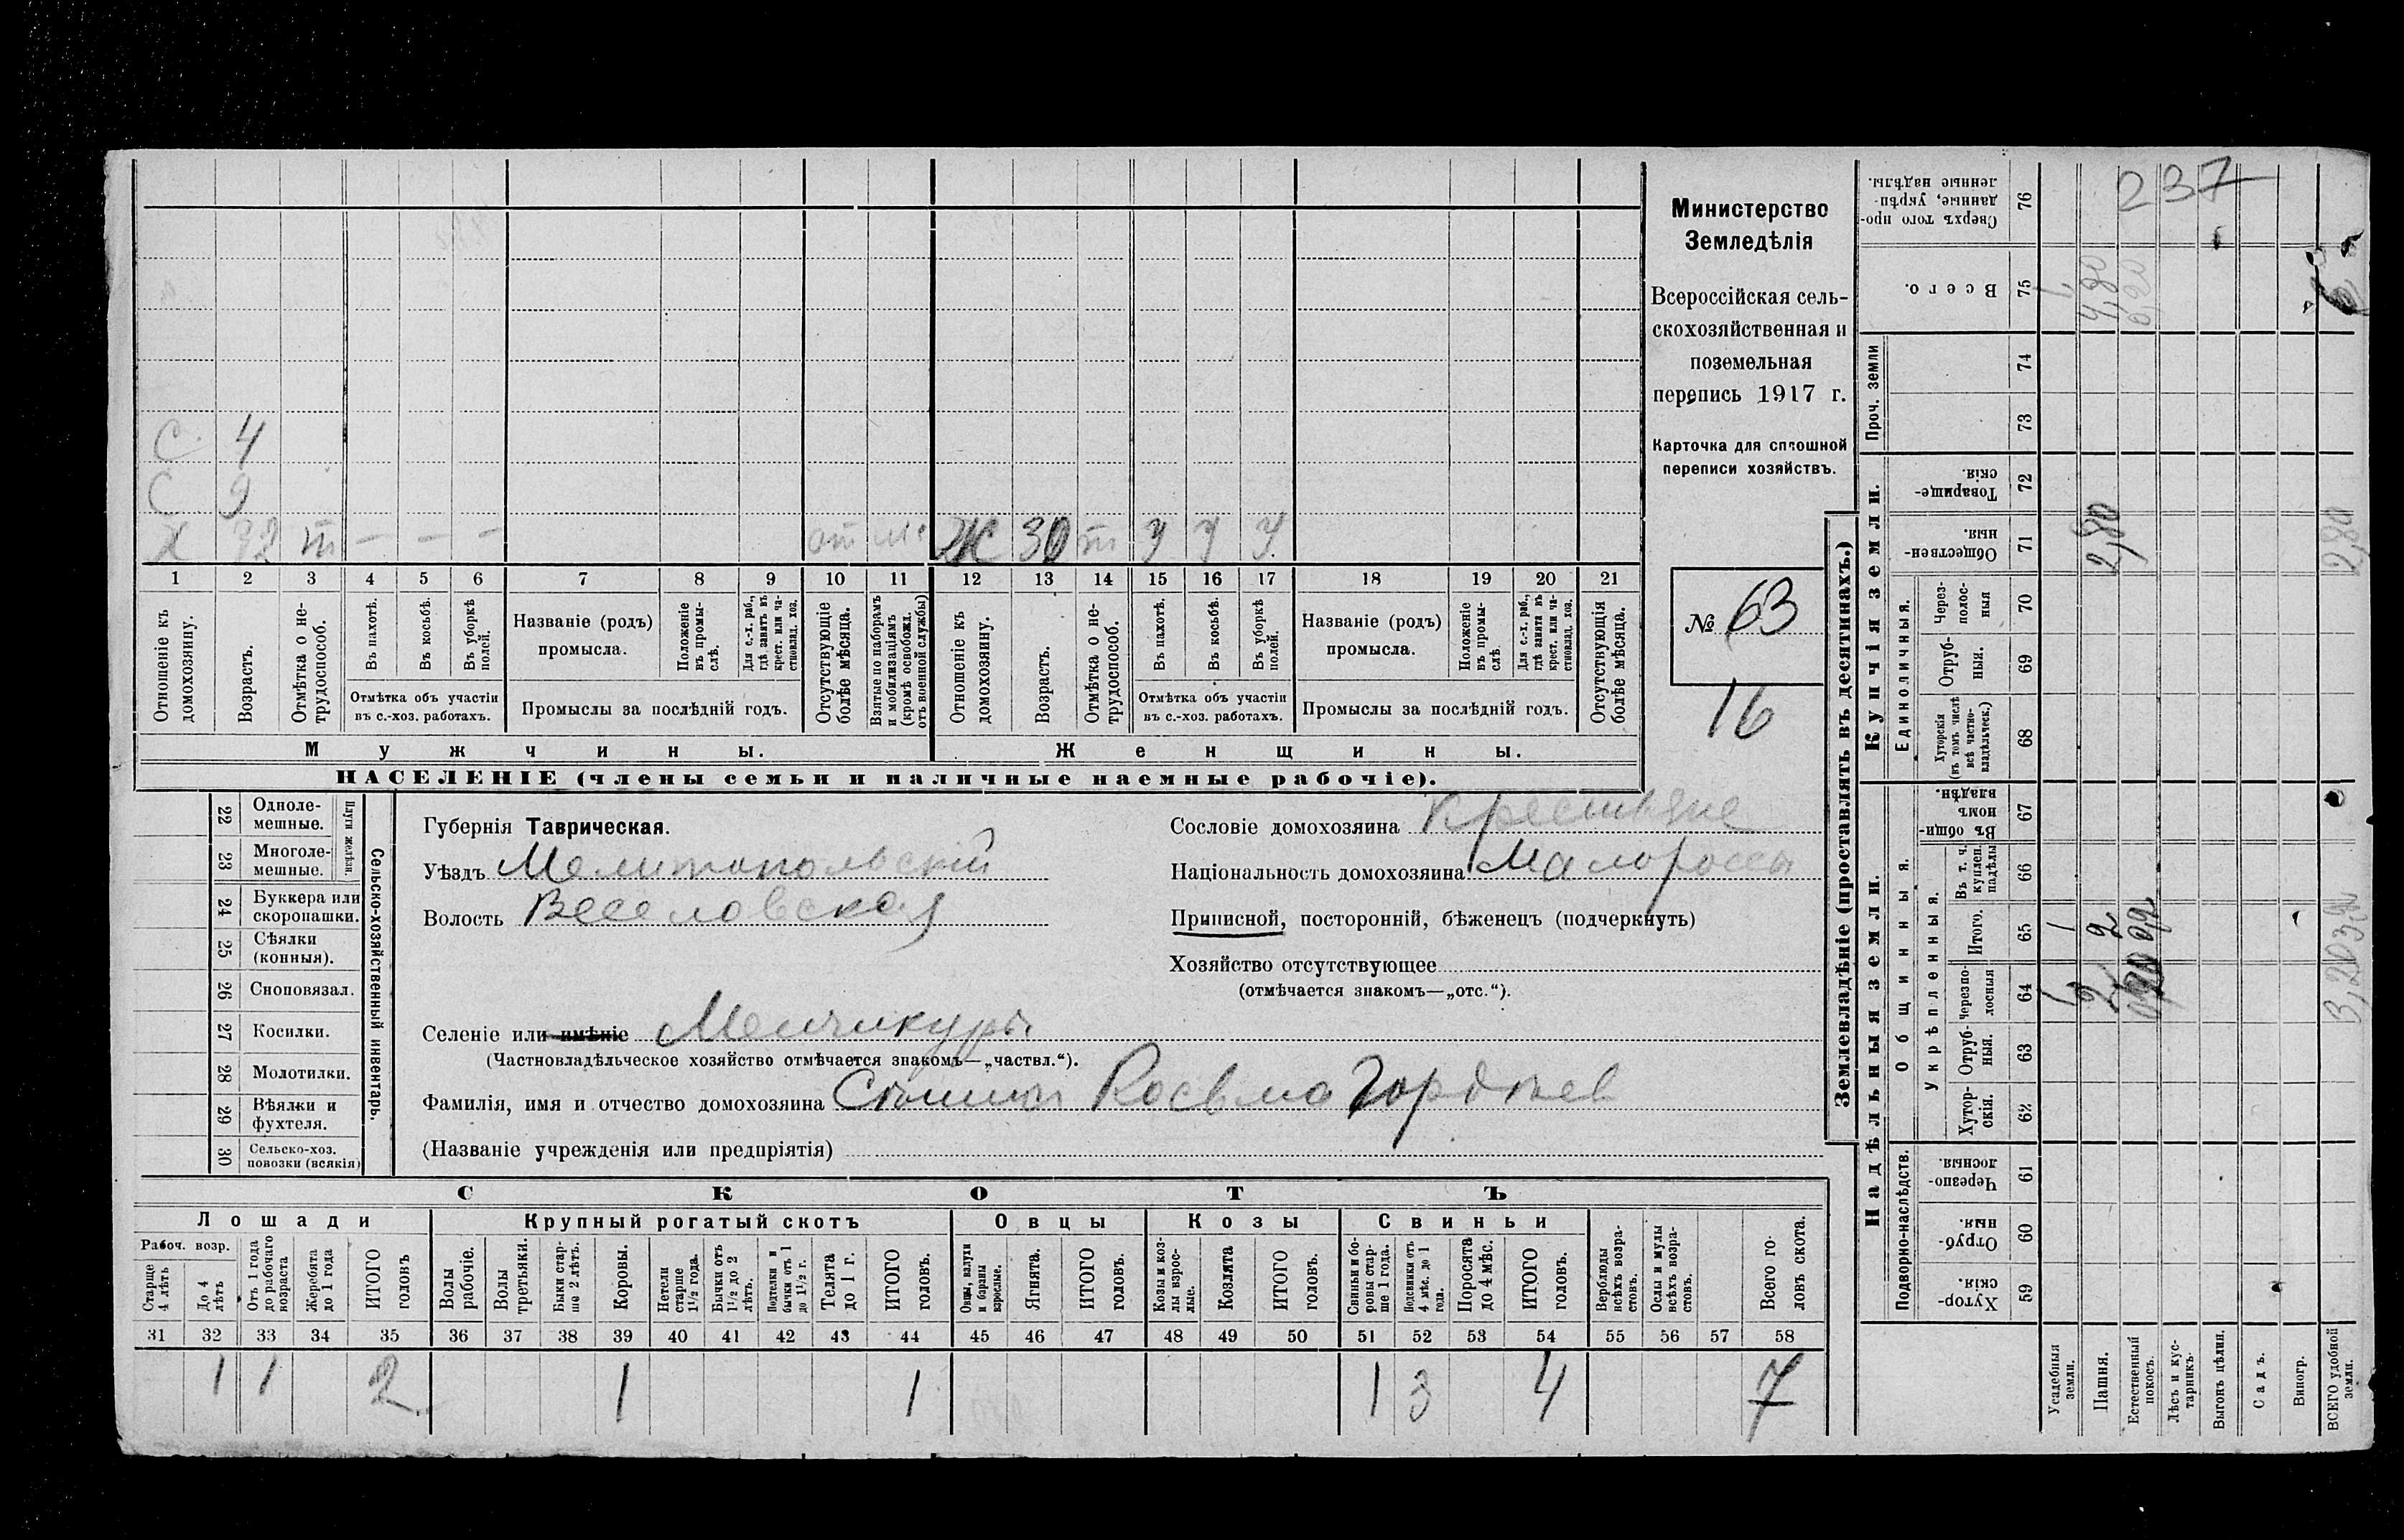 С. 4
С 9
Х 32 т — — — от мс Ж 30 т У У У
1 2 3 4 5 6 7 8 9 10 11 12 13 14 15 16 17 18 19 20 21
Отношеніе къ домохозяину.
Возрастъ.
Отмѣтка о нетрудоспособ.
Въ пахотѣ.
Въ косьбѣ.
Въ уборкѣ полей.
Отмѣтка объ участіи въ с.-хоз. работахъ.
Названіе (родъ) промысла.
Положеніе въ промыслѣ.
Для с.-х. раб., гдѣ занятъ въ крест. или частновлад. хоз.
Промыслы за послѣдній годъ.
Отсутствующіе болѣе мѣсяца.
Взятые по наборамъ и мобилизаціямъ (кромѣ освобожд. отъ военной службы)
Отношеніе къ домохозяину.
Возрастъ.
Отмѣтка о нетрудоспособ.
Въ пахотѣ.
Въ косьбѣ.
Въ уборкѣ полей.
Отмѣтка объ участіи въ с.-хоз. работахъ.
Названіе (родъ) промысла.
Положеніе въ промыслѣ.
Для с.-х. раб., гдѣ занята въ крест. или частновлад. хоз.
Промыслы за послѣдній годъ.
Отсутствующія болѣе мѣсяца.
Мужчины.
Женщины.
НАСЕЛЕНІЕ (члены семьи и наличные наемные рабочіе).
Министерство
Земледѣлія
Всероссійская сель-
скохозяйственная и
поземельная
перепись 1917 г.
Карточка для сплошной
переписи хозяйствъ.
№ 63
16
22 Одноле-
мешные.
23 Многоле-
мешные.
Плуги желѣзн.
24 Буккера или
скоропашки.
25 Сѣялки
(конныя).
26 Сноповязал.
27 Косилки.
28 Молотилки.
29 Вѣялки и
фухтеля.
30 Сельско-хоз.
повозки (всякія)
Сельско-хозяйственный инвентарь.
Губернія Таврическая.
Уѣздъ Мелитопольскій
Волость Веселовская
Селеніе или имѣніе Менчикуры
(Частновладѣльческое хозяйство отмѣчается знакомъ—„частвл.“).
Фамилія, имя и отчество домохозяина Косьма Гордѣев
(Названіе учрежденія или предпріятія)
Сословіе домохозяина Крестьяне
Національность домохозяина Малороссы
Приписной, посторонній, бѣженецъ (подчеркнуть)
Хозяйство отсутствующее
(отмѣчается знакомъ—„отс.“).
СКОТЪ
Лошади
Крупный рогатый скотъ
Овцы
Козы
Свиньи
Рабоч. возр.
Старше 4 лѣтъ
До 4 лѣтъ
Отъ 1 года до рабочаго возраста
Жеребята до 1 года
ИТОГО головъ
Волы рабочіе.
Волы третьяки.
Быки старше 2 лѣтъ.
Коровы.
Нетели старше 1½ года.
Бычки отъ 1½ до 2 лѣтъ.
Подтелки и бычки отъ 1 до 1½ г.
Телята до 1 г.
ИТОГО головъ.
Овцы, валухи и бараны взрослые.
Ягнята.
ИТОГО головъ.
Козы и козлы взрослые.
Козлята
ИТОГО головъ.
Свиньи и боровы старше 1 года.
Подсвинки отъ 4 мѣс. до 1 года.
Поросята до 4 мѣс.
ИТОГО головъ.
Верблюды всѣхъ возрастовъ.
Ослы и мулы всѣхъ возрастовъ.
Всего головъ скота.
31 32 33 34 35 36 37 38 39 40 41 42 43 44 45 46 47 48 49 50 51 52 53 54 55 56 57 58
1 1 2 1 1 1 3 4 7
Землевладѣніе (проставлять въ десятинахъ.)
Надѣльныя земли.
Купчія земли.
Проч. земли
Подворно-наслѣдств.
Общинныя.
Укрѣпленныя.
Единоличныя.
Сверхъ того проданные, укрѣпленные надѣлы. 76
Всего. 75
74
73
Товарищескія. 72
Общественныя. 71
Через-полосныя 70
Отрубныя. 69
Хуторскія (въ томъ числѣ всѣ частновладѣльческ.) 68
Въ общинномъ владѣн. 67
Въ т. ч. куплен. надѣлы 66
Итого. 65
Черезполосныя 64
Отрубныя. 63
Хуторскія. 62
Черезполосныя. 61
Отрубныя. 60
Хуторскія. 59
Усадебныя земли.
Пашня.
Естественный покосъ.
Лѣсъ и кустарникъ.
Выгонъ цѣлин.
Садъ.
Виногр.
ВСЕГО удобной земли.
237
2,80
2,80